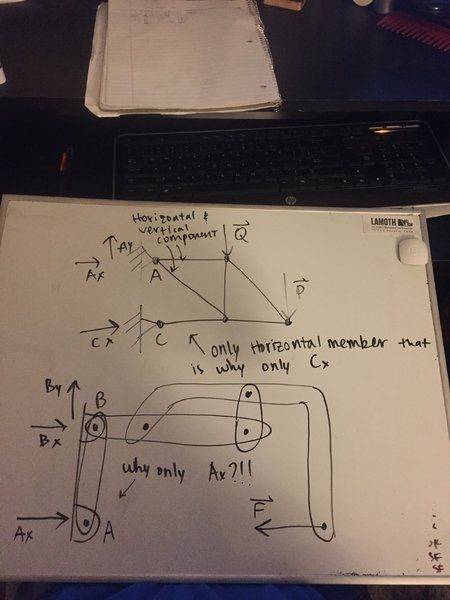 LAMOTH
Horizontal &
vertical
component
Q
Ay
Ax
A
P
Cx
C
only Horizontal member that
is why only Cx
By
B
Bx
why only Ax?!!
F
Ax
A
SF
SF
hp